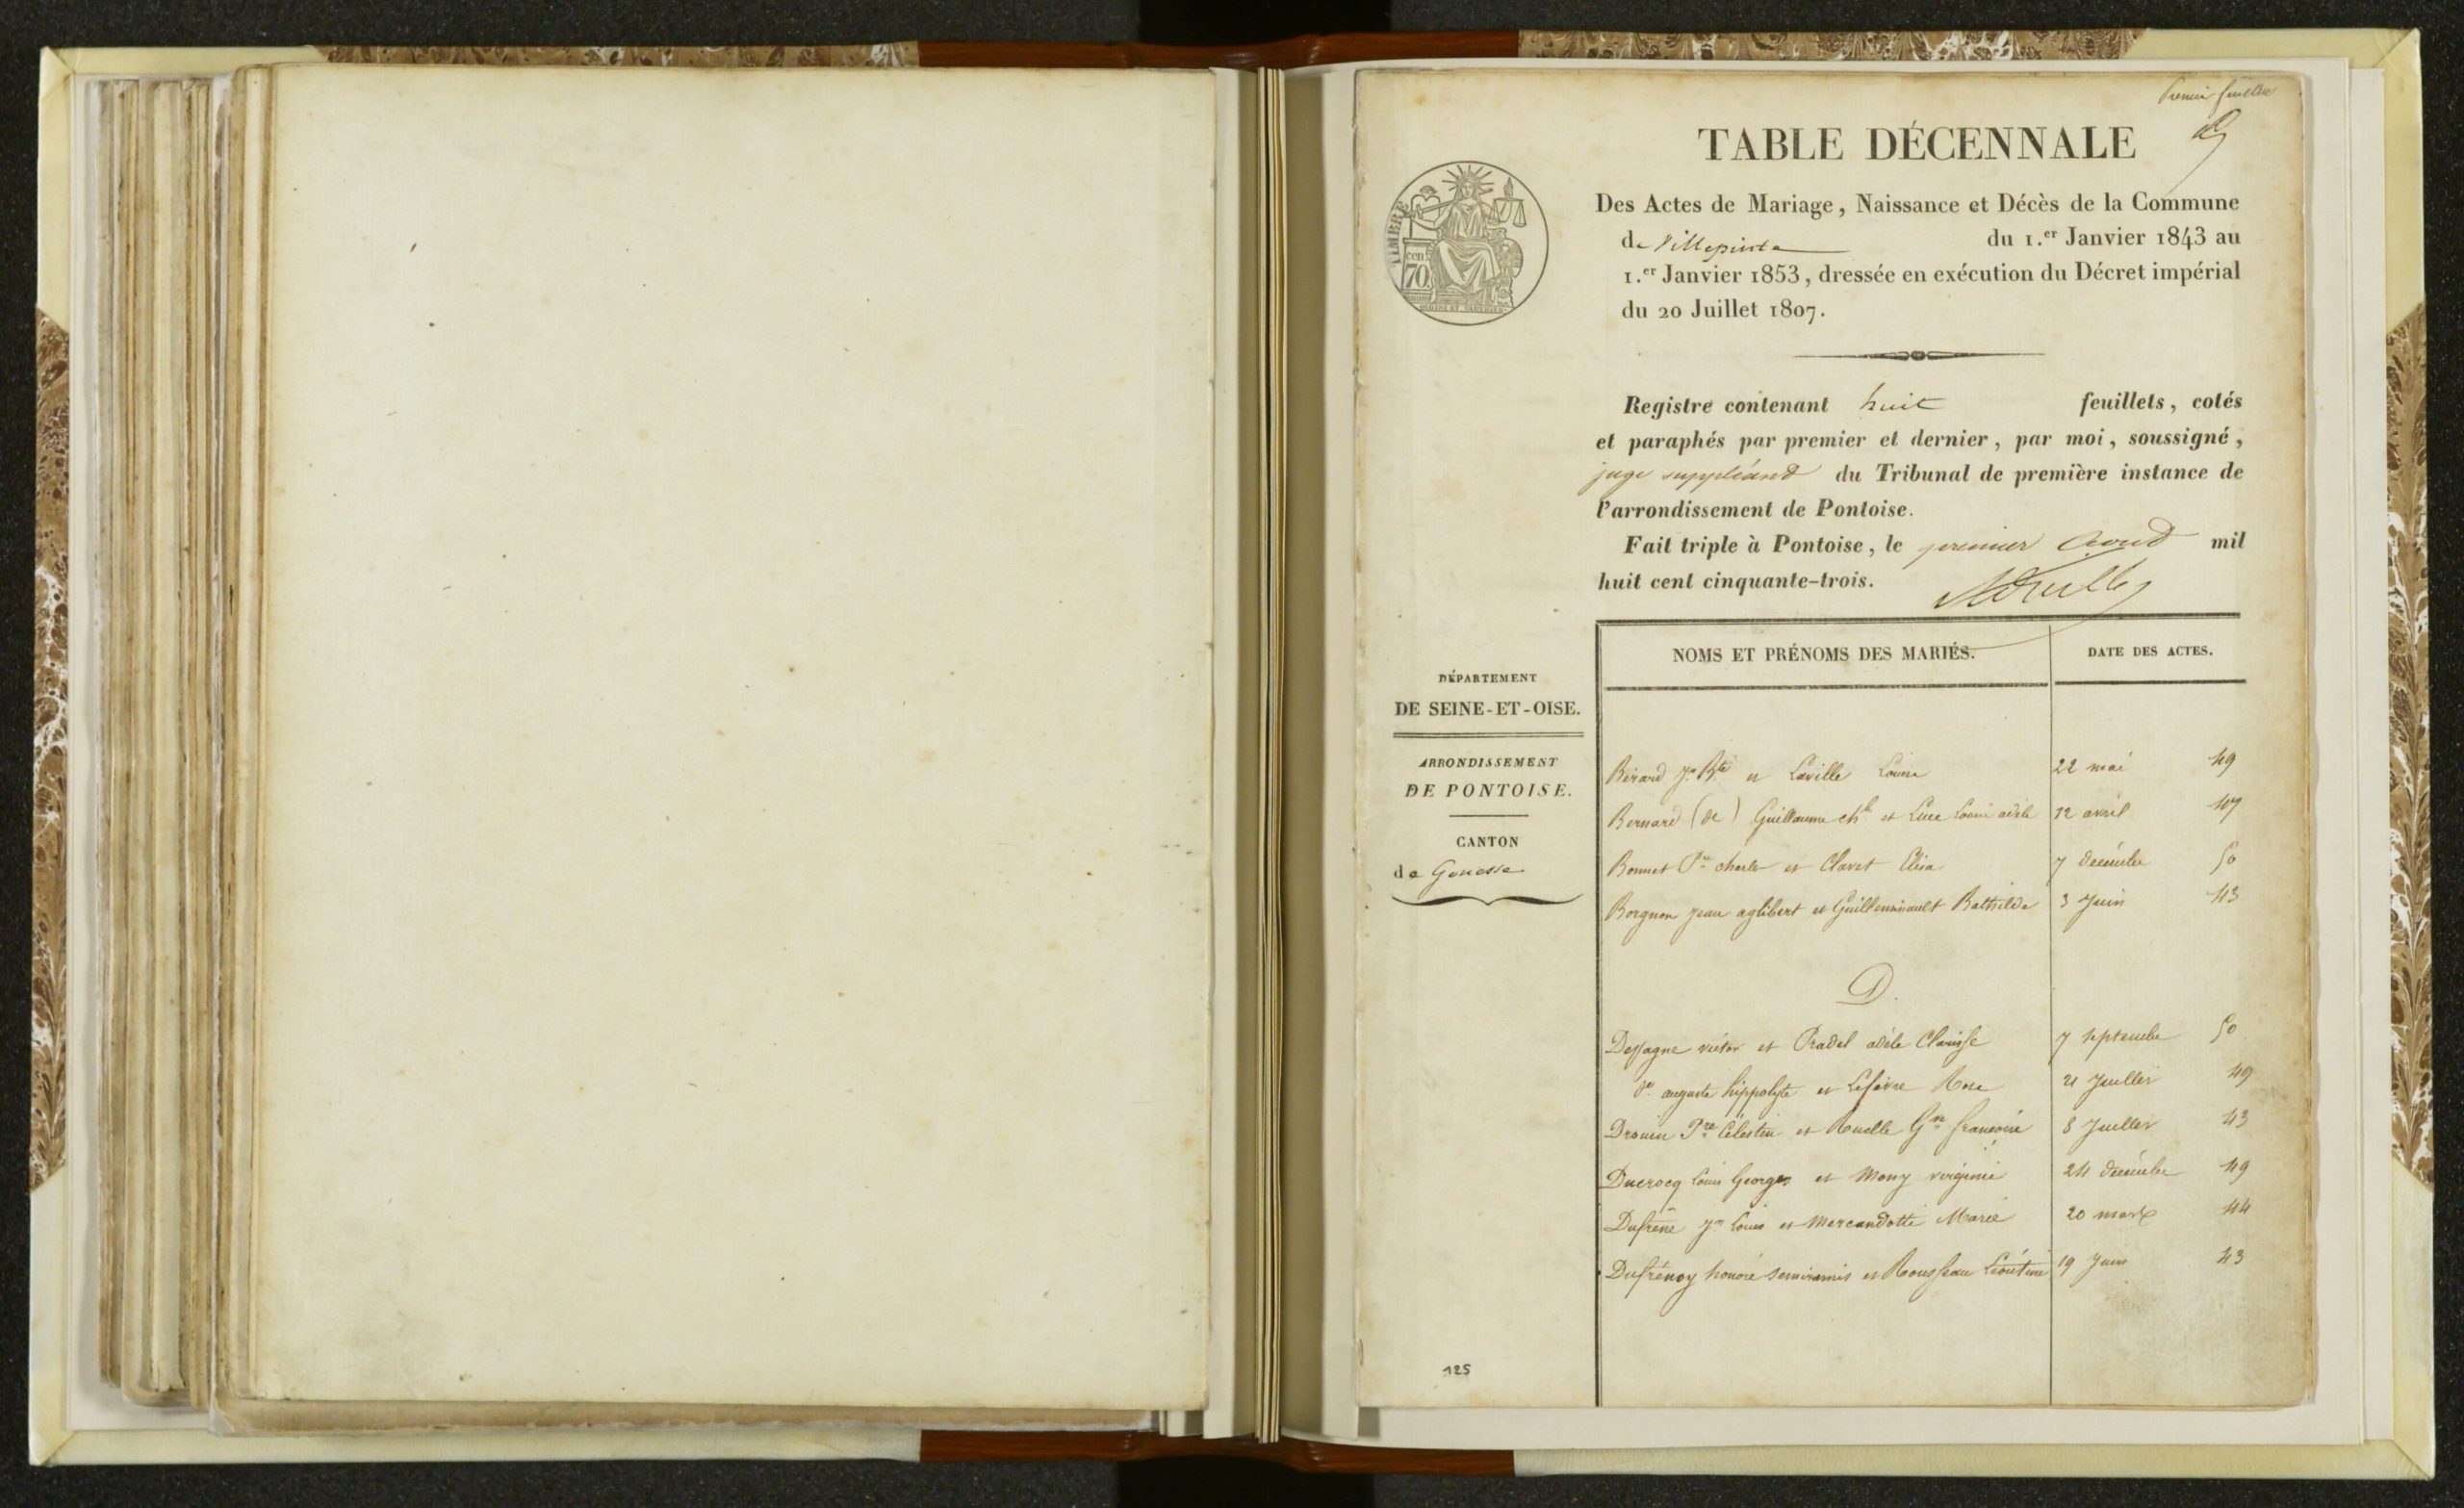 Premier feuillet
TABLE DÉCENNALE
Des Actes de Mariage, Naissance et Décès de la Commune
de Villepinte du 1.er Janvier 1843 au
1.er Janvier 1853, dressée en exécution du Décret impérial
du 20 Juillet 1807.
TIMBRE
cen.
70
Registre contenant huit feuillets, cotés
et paraphés par premier et dernier, par moi, soussigné,
juge suppléant du Tribunal de première instance de
l'arrondissement de Pontoise.
Fait triple à Pontoise, le premier Aout mil
huit cent cinquante-trois.
DÉPARTEMENT
DE SEINE-ET-OISE.
ARRONDISSEMENT
DE PONTOISE.
CANTON
de Gonesse
NOMS ET PRÉNOMS DES MARIÉS. DATE DES ACTES.
Bérard Jn Bte et Laville Louise 22 mai 49
Bernard (de) Guillaume Ch. et Luce Louise adèle 12 avril 47
Bonnet Pre charles et Clavet Elisa 7 décembre 50
Borgnon Jean aglibert et Guilleminault Bathilde 3 Juin 43
D.
Deffagne victor et Pradel adèle Clarisse 7 septembre 50
do auguste hippolyte et Lefèvre Rose 21 Juillet 49
Drouin Pre Célestin et Ruelle Gve françoise 8 Juillet 43
Ducrocq Louis Georges et Mony virginie 24 décembre 49
Dufrêne Jn Louis et Mercandotti Marie 20 mars 44
Dufrénoy honoré semiramis et Rousseau Léontine 19 Juin 43
125